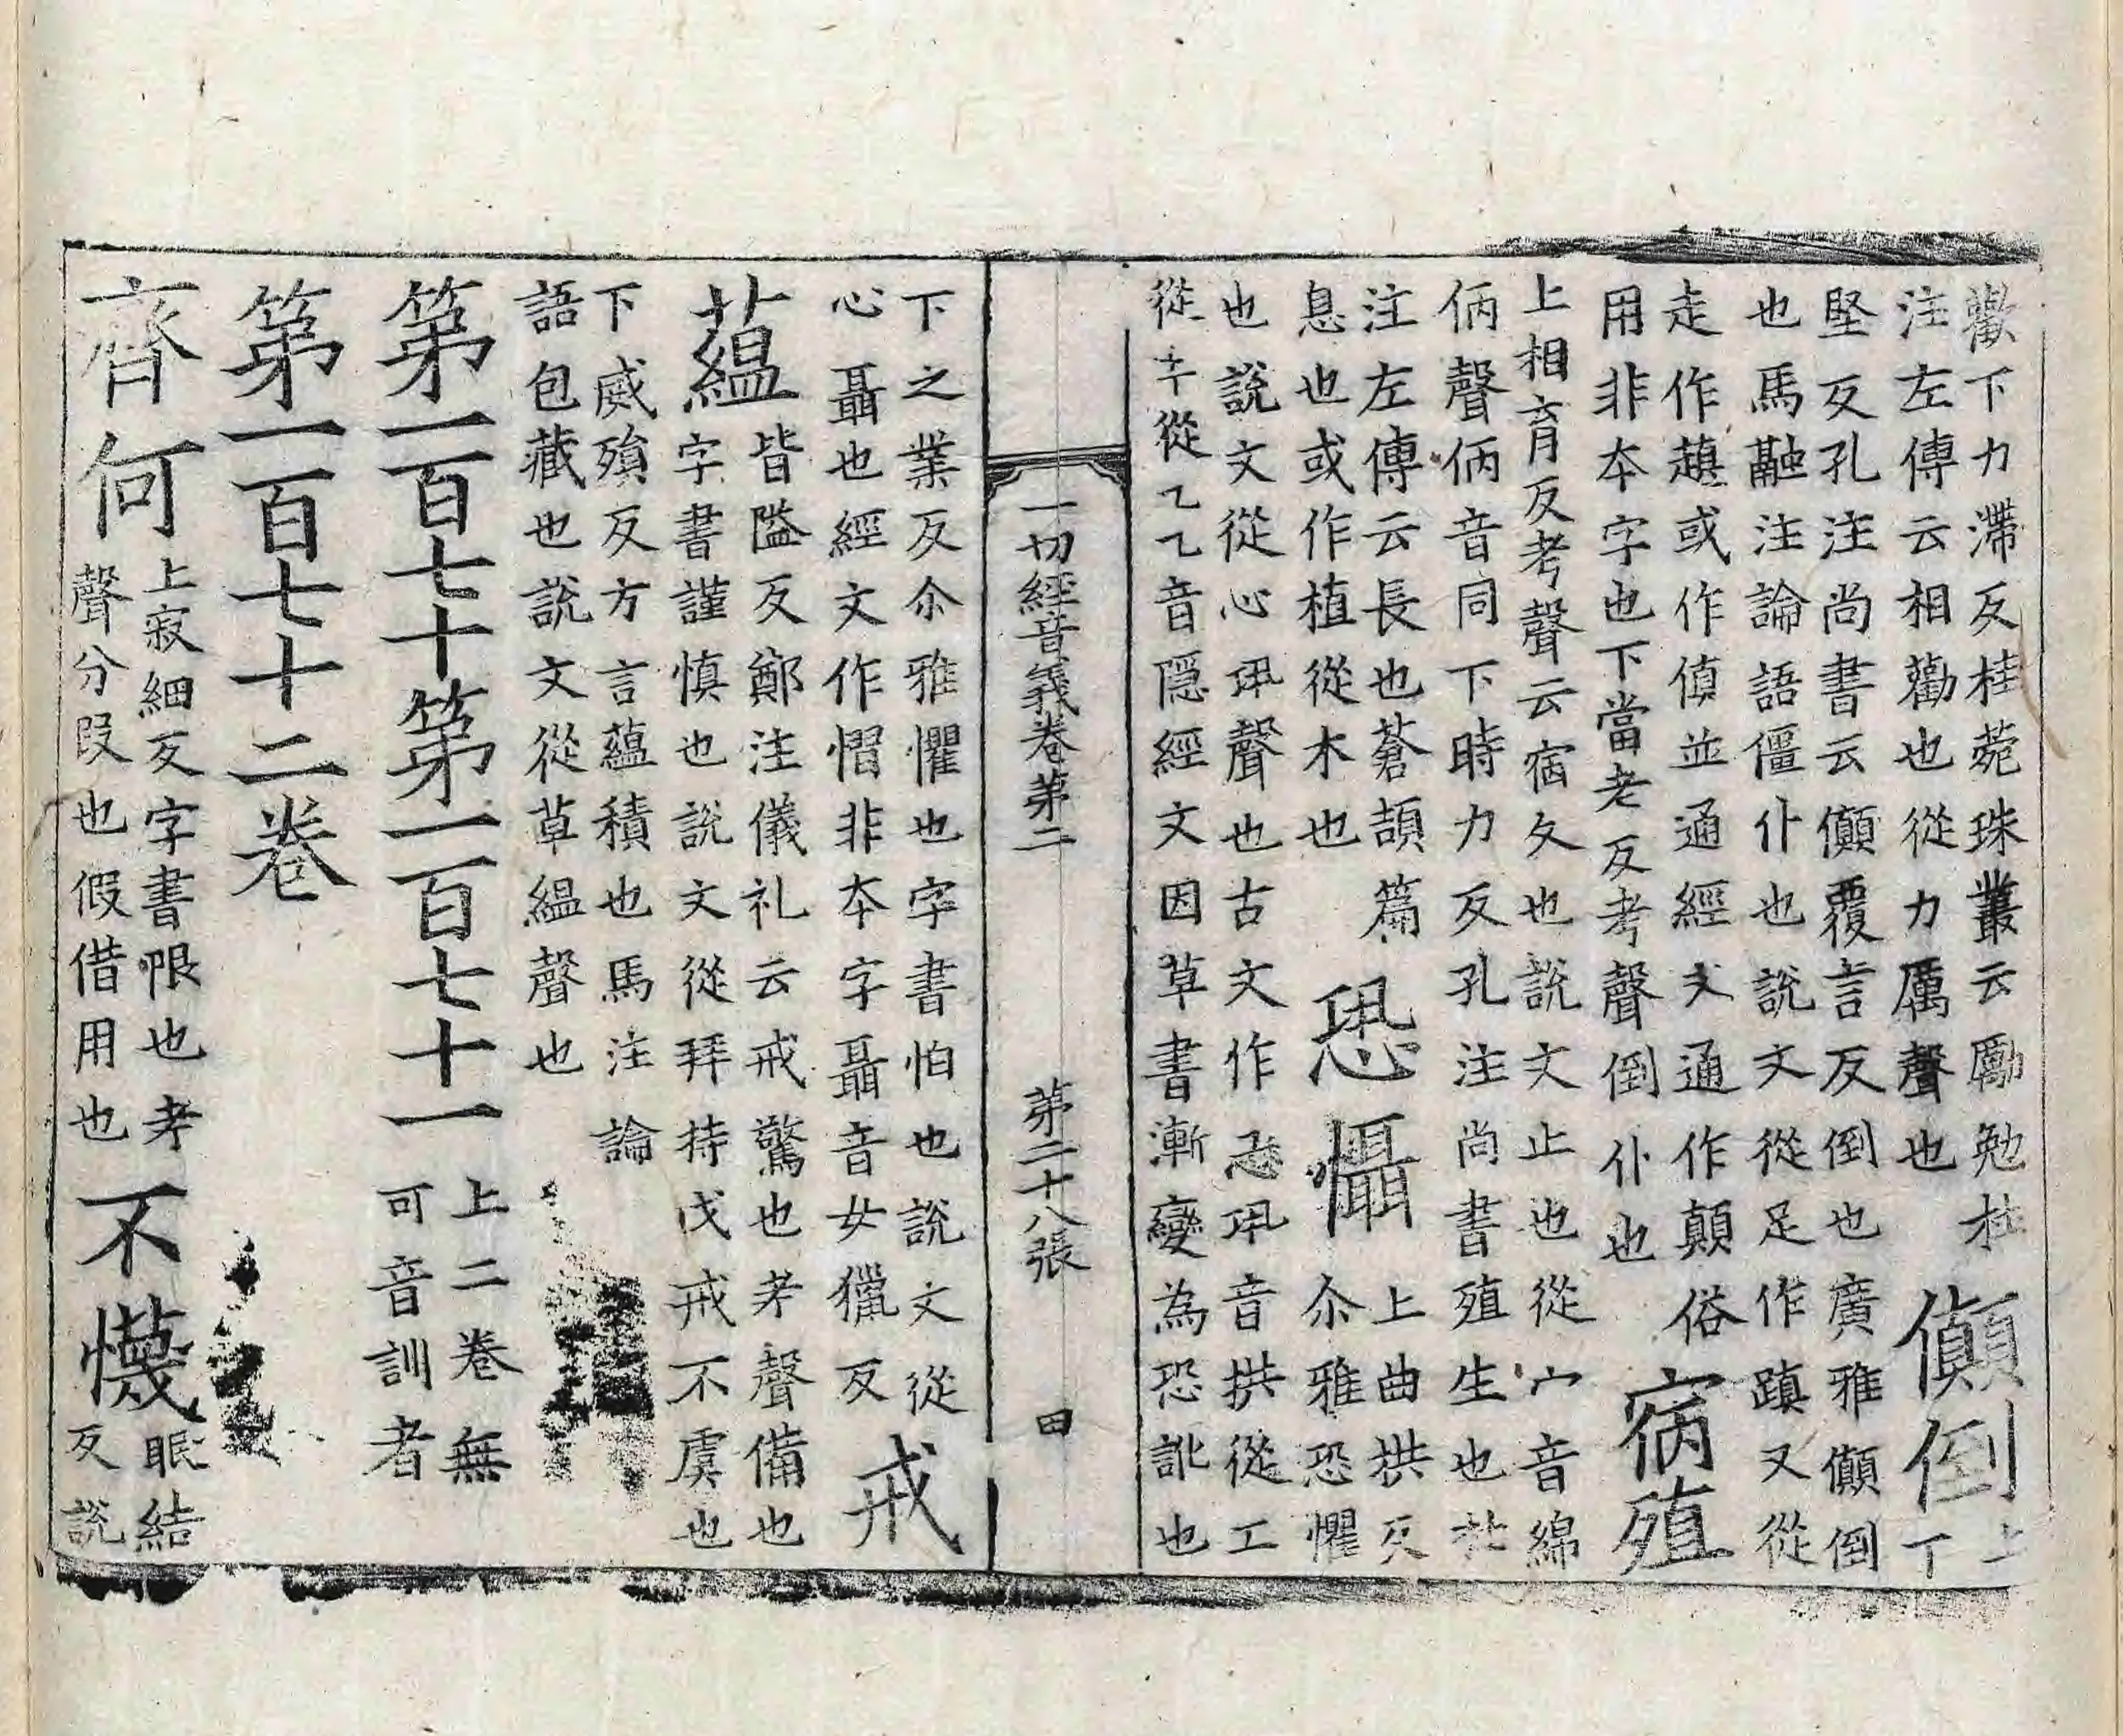 歡下力滯反桂菀珠叢云勵勉杜
注左傳云相勸也從力厲聲也
儮倒上
丁
堅反孔注尚書云儮覆言反倒也廣雅儮倒
也馬融注論語僵仆也說文從足作蹎又從
走作䞓或作傎並通經文通作顛俗
用非本字也下當老反考聲倒仆也
㝱殖
上相育反考聲云宿久也說文止也從宀音綿
㐁聲㐁音同下時力反孔注尚書殖生也杜
注左傳云長也蒼頡篇
息也或作植從木也
恐懾
上曲拱反
尒雅恐懼
也說文從心巩聲也古文作忎巩音拱從工
從丮從乙乙音隱經文因草書漸變為恐訛也
一切經音義卷第二 第二十八張 田
下之葉反尒雅懼也字書怕也說文從
心聶也經文作慴非本字聶音女獵反
戒
蘊
皆隘反鄭注儀礼云戒驚也考聲備也
字書謹慎也說文從拜持戈戒不虞也
下威殞反方言蘊積也馬注論
語包藏也說文從草縕聲也
第一百七十第一百七十一
上二卷無
可音訓者
第一百七十二卷
齊何
上寂細反字書限也考
聲分叚也假借用也
不懱
眠結
反說